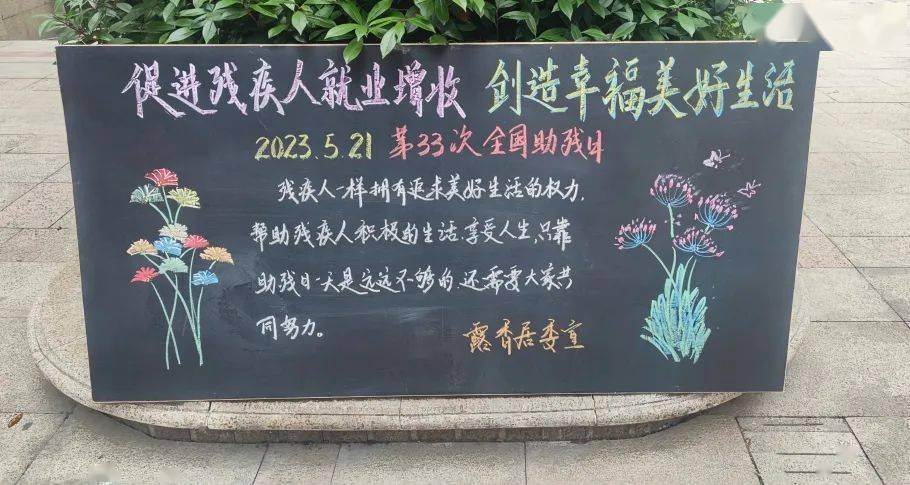 促进残疾人就业增收 创造幸福美好生活
2023.5.21 第33次全国助残日
残疾人一样拥有追求美好生活的权力,
帮助残疾人积极的生活,享受人生,只靠
助残日一天是远远不够的,还需要大家共
同努力。
露香居委宣